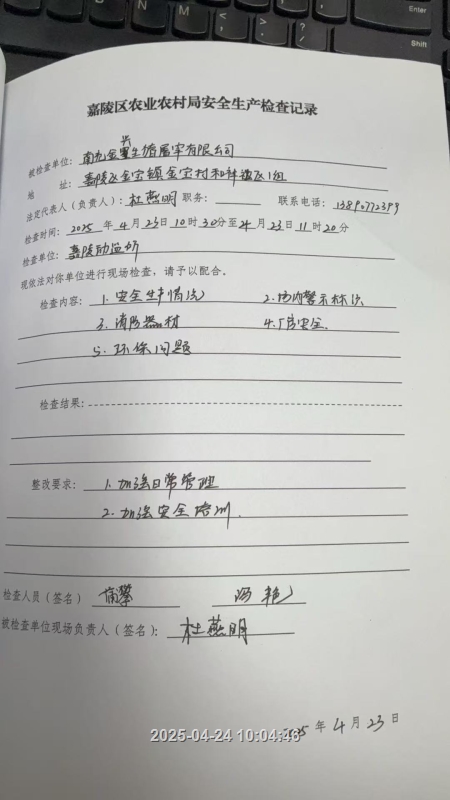 嘉陵区农业农村局安全生产检查记录
被检查单位：南充金 生 有限公司
地 址：嘉陵区金宝镇金宝村 1组
法定代表人（负责人）：杜燕明 职务： 联系电话：
检查时间：2025年4月23日10时30分至 4月23日11时20分
检查单位：嘉陵
现依法对你单位进行现场检查，请予以配合。
检查内容：1.安全生产情况 2.场内警示标识
3.消防器材 4.厂房安全.
5.环保问题
检查结果：
整改要求：1.加强日常管理
2.加强安全培训.
检查人员（签名）
被检查单位现场负责人（签名）：杜燕明
2025年4月23日
2025-04-24 10:04:46
Ctrl
Shift